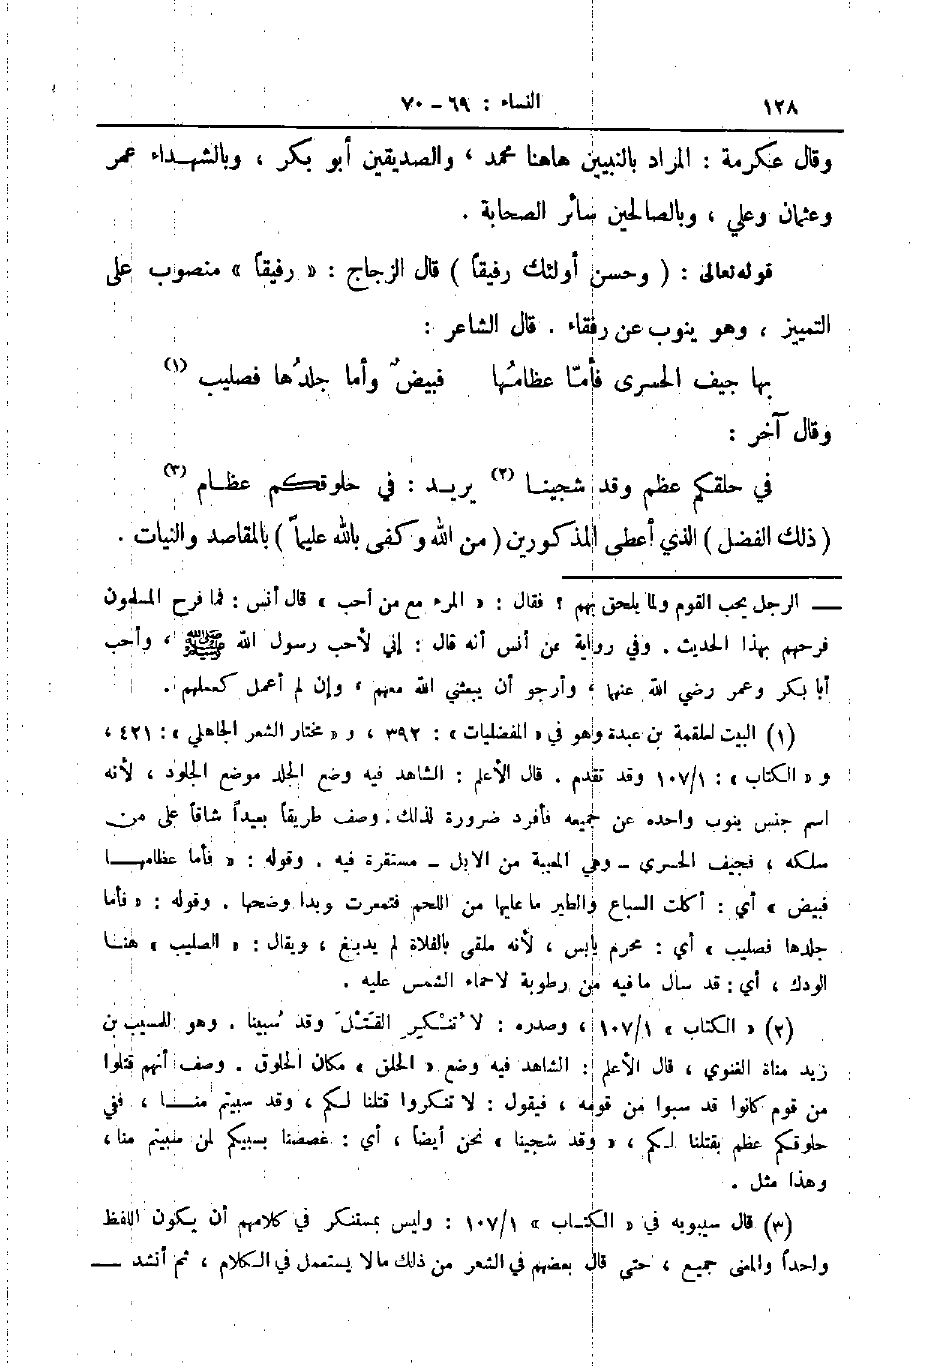 ١٢٨ النساء : ٦٩ – ٧٠
وقال عكرمة : المراد بالنبيين هاهنا محمد ، والصديقين أبو بكر ، وبالشهداء عمر
وعثمان وعلي ، وبالصالحين سائر الصحابة .
قوله تعالى : ( وحسن أولئك رفيقاً ) قال الزجاج : « رفيقاً » منصوب على
التمييز ، وهو ينوب عن رفقاء . قال الشاعر :
بها جيف الحسرى فأمّا عظامُها فبيضٌ وأما جلدُها فصليب (١)
وقال آخر :
في حلقكم عظم وقد شجينا (٢) يريد : في حلوقكم عظام (٣)
( ذلك الفضل ) الذي أعطى المذكورين ( من الله وكفى بالله عليماً ) بالمقاصد والنيات .
— الرجل يحب القوم ولما يلحق بهم ؟ فقال : « المرء مع من أحب » قال أنس : فما فرح المسلمون
فرحهم بهذا الحديث . وفي رواية عن أنس أنه قال : إني لأحب رسول الله ﷺ ، وأحب
أبا بكر وعمر رضي الله عنها ، وأرجو أن يبعثني الله معهم ، وإن لم أعمل كعملهم .
(١) البيت لعلقمة بن عبدة وهو في « المفضليات » : ٣٩٢ ، و « مختار الشعر الجاهلي » : ٤٢١ ،
و « الكتاب » : ١٠٧/١ وقد تقدم . قال الأعلم : الشاهد فيه وضع الجلد موضع الجلود ، لأنه
اسم جنس ينوب واحده عن جميعه فأفرد ضرورة لذلك . وصف طريقاً بعيداً شاقاً على من
سلكه ، فجيف الحسرى – وهي المعيبة من الابل – مستقرة فيه . وقوله : « فأما عظامها
فبيض » أي : أكلت السباع والطير ما عليها من اللحم فتعرت وبدا وضحها . وقوله : « فأما
جلدها فصليب » أي : محرم يابس ، لأنه ملقى بالفلاة لم يدبغ ، ويقال : « الصليب » هنا
الودك ، أي : قد سال ما فيه من رطوبة لاحماء الشمس عليه .
(٢) « الكتاب » ١٠٧/١ ، وصدره : لا تُنْكِرِ القَتْلَ وقد سُبينا . وهو للمسيب بن
زيد مناة الغنوي ، قال الأعلم : الشاهد فيه وضع « الحلق » مكان الحلوق . وصف أنهم قتلوا
من قوم كانوا قد سبوا من قومه ، فيقول : لا تنكروا قتلنا لكم ، وقد سبيتم منا ، ففي
حلوقكم عظم بقتلنا لكم ، « وقد شجينا » نحن أيضاً ، أي : غصصنا بسبيكم لمن سبيتم منا ،
وهذا مثل .
(٣) قال سيبويه في « الكتاب » ١٠٧/١ : وليس بمستنكر في كلامهم أن يكون اللفظ
واحداً والمعنى جميع ، حتى قال بعضهم في الشعر من ذلك ما لا يستعمل في الكلام ، ثم أنشد —